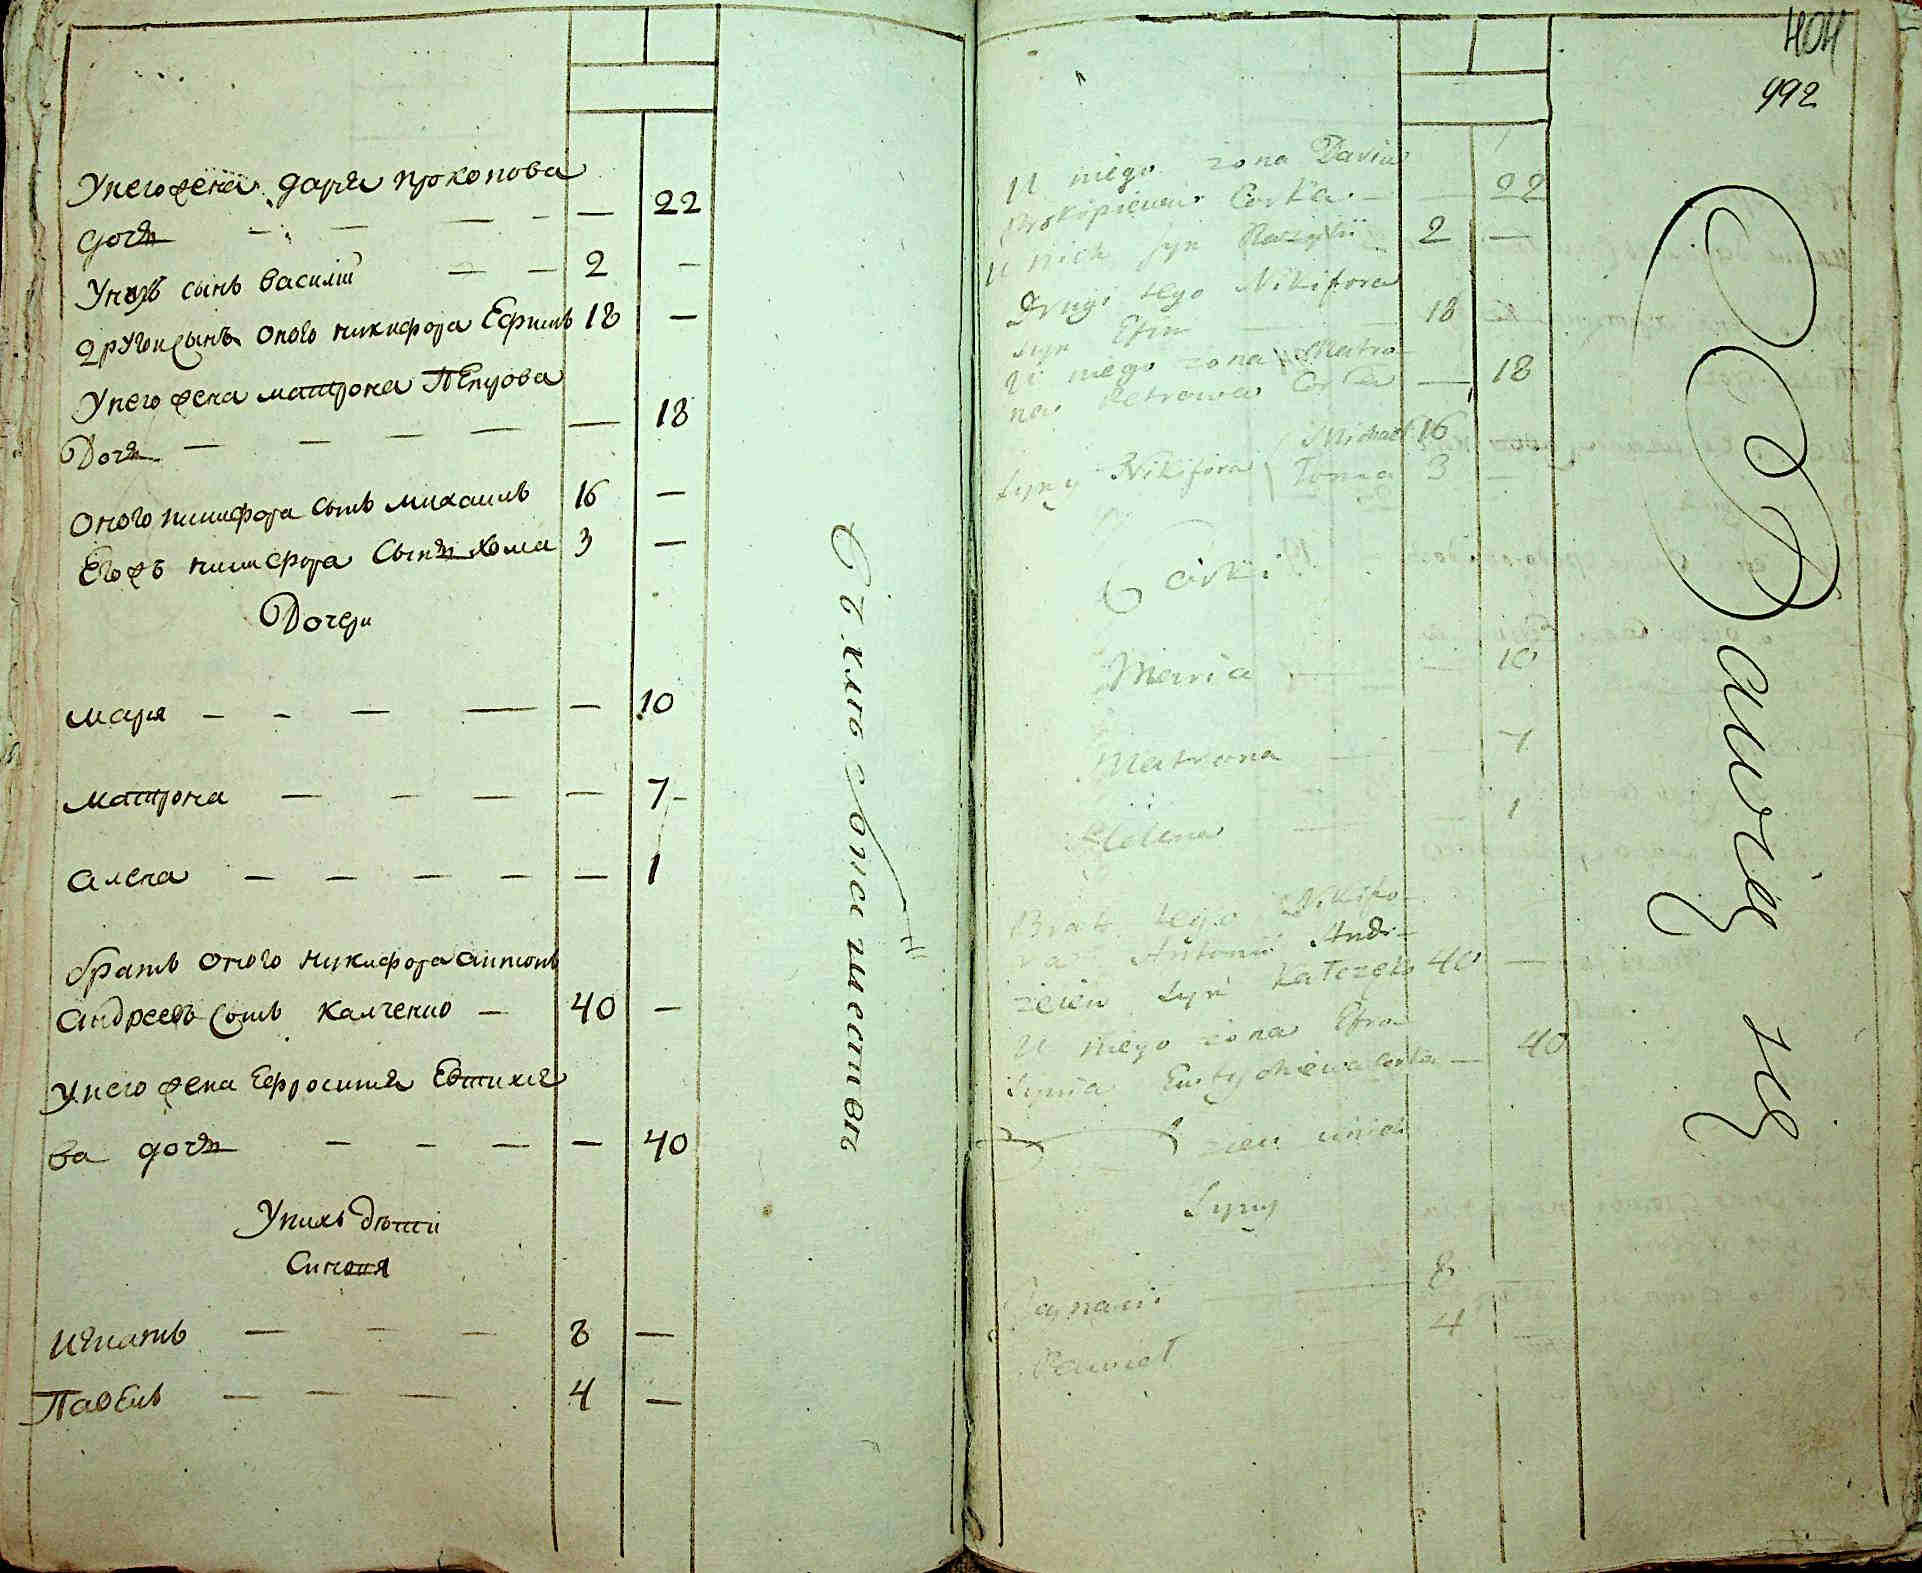 Унего жена дарья прокопова
дочь — — — — — 22
Унихъ сынъ василий — — 2 —
другой сынъ оного никифора Ефимъ 18 —
Унего жена матрона Петрова
Дочь — — — — — 18
Оного никифора сынъ михаилъ 16 —
Егожъ никифора Сынъ хома 3 —
Дочери
маря — — — — — 10
матрона — — — — 7
алена — — — — — 1
братъ оного никифора антонъ
андреевъ сынъ калченко — 40 —
унего жена Ефросиния Евтихие
ва дочь — — — — 40
Унихъ дѣти
Синовя
Игнатъ — — — 8 —
Павелъ — — — 4 —
404
992
U niego zona Daria
Prokopiewa Corka — — 22
U nich syn Wazylii 2 —
Drugi tego Nikifora
syn Efim — 18
U niego zona Matro-
na Petrowa Corka — 18
Syny Nikifora Michael 16
Toma 3 —
Corki
Maria — — 10
Matrona — — 7
Helena — — 1
Brat tego Nikifo-
ra Antonii Andr-
zeiew syn 40 —
U niego zona Efro-
synia Eutychiewa Corka — 40
U nich
Syny
Jgnacii — 8 —
Pawieł — 4 —